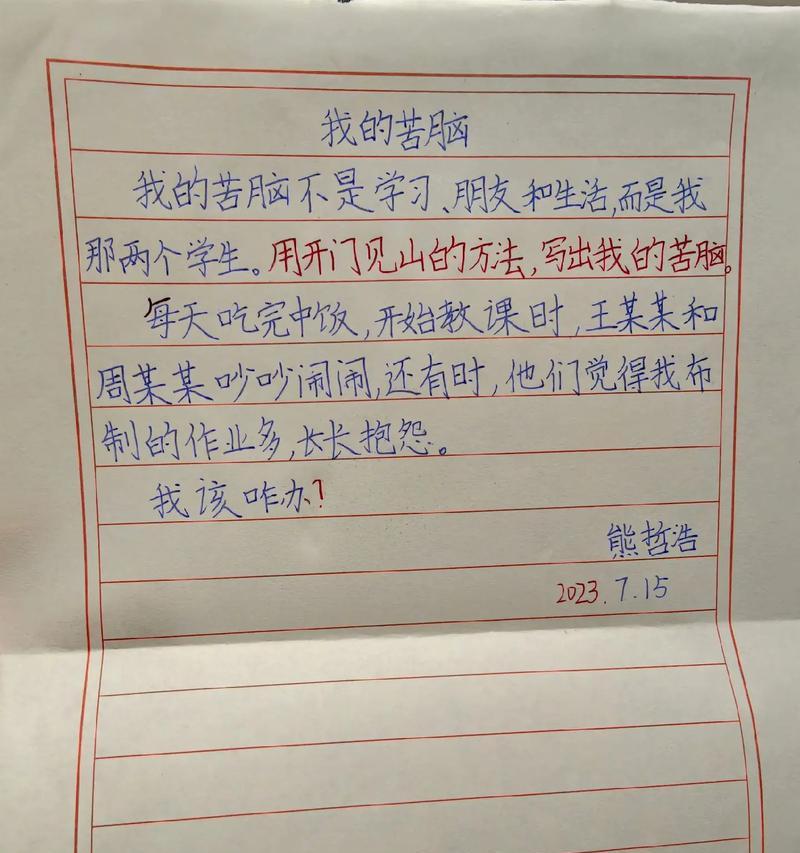 我的苦脑
我的苦脑不是学习、朋友和生活,而是我
那两个学生。用开门见山的方法,写出我的苦脑。
每天吃完中饭,开始教课时,王某某和
周某某吵吵闹闹,还有时,他们觉得我布
制的作业多,长长抱怨。
我该咋办?
熊哲浩
2023.7.15